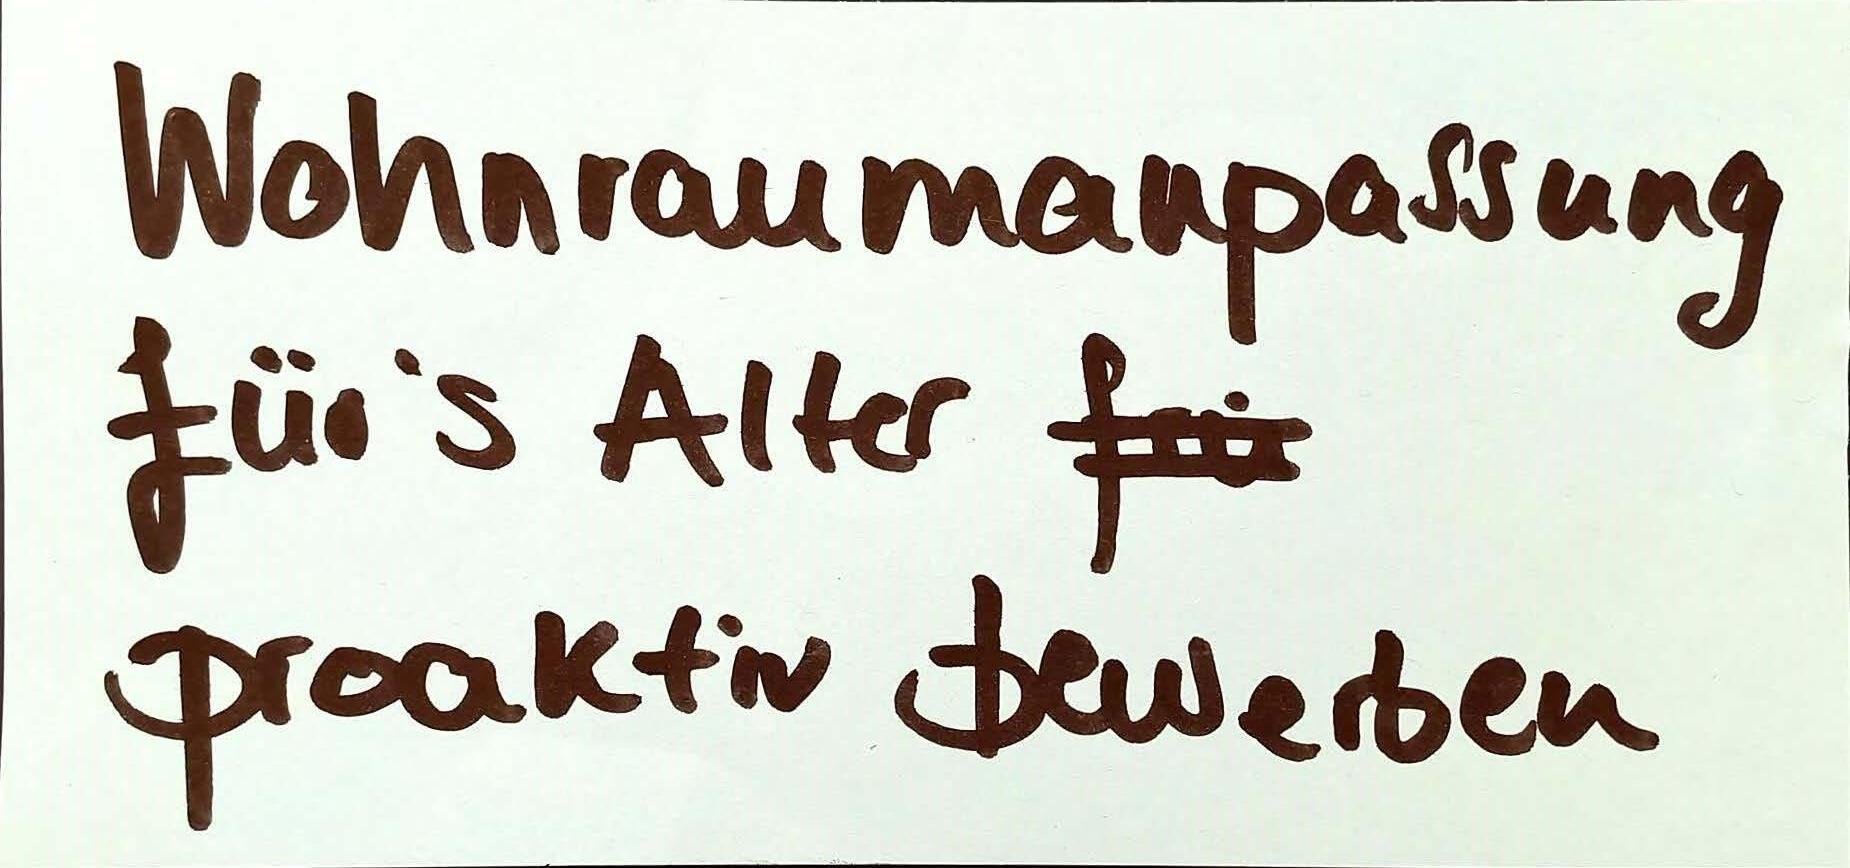 Wohnraumanpassung
für's Alter
proaktiv bewerben